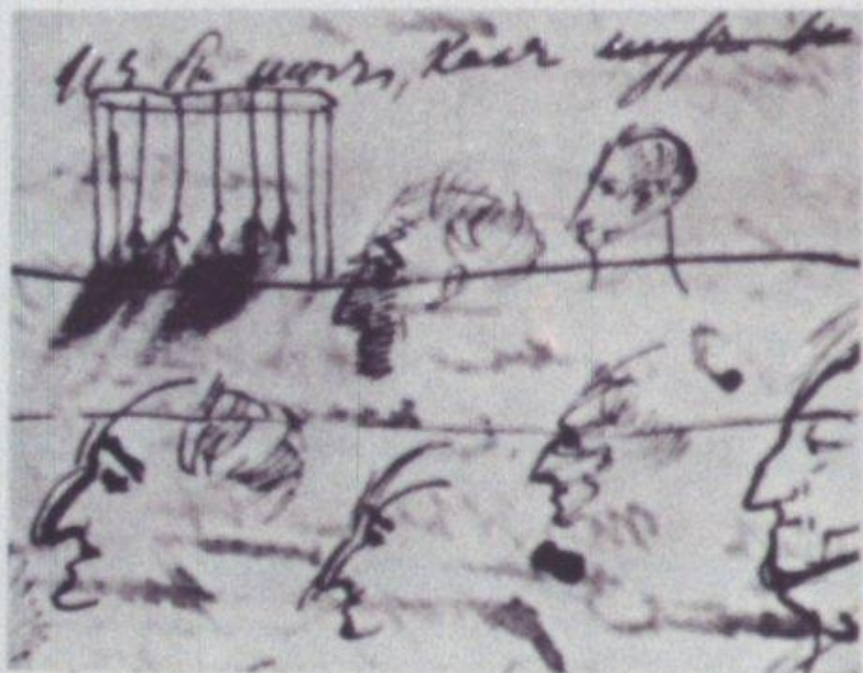 И я бы мог, как шут